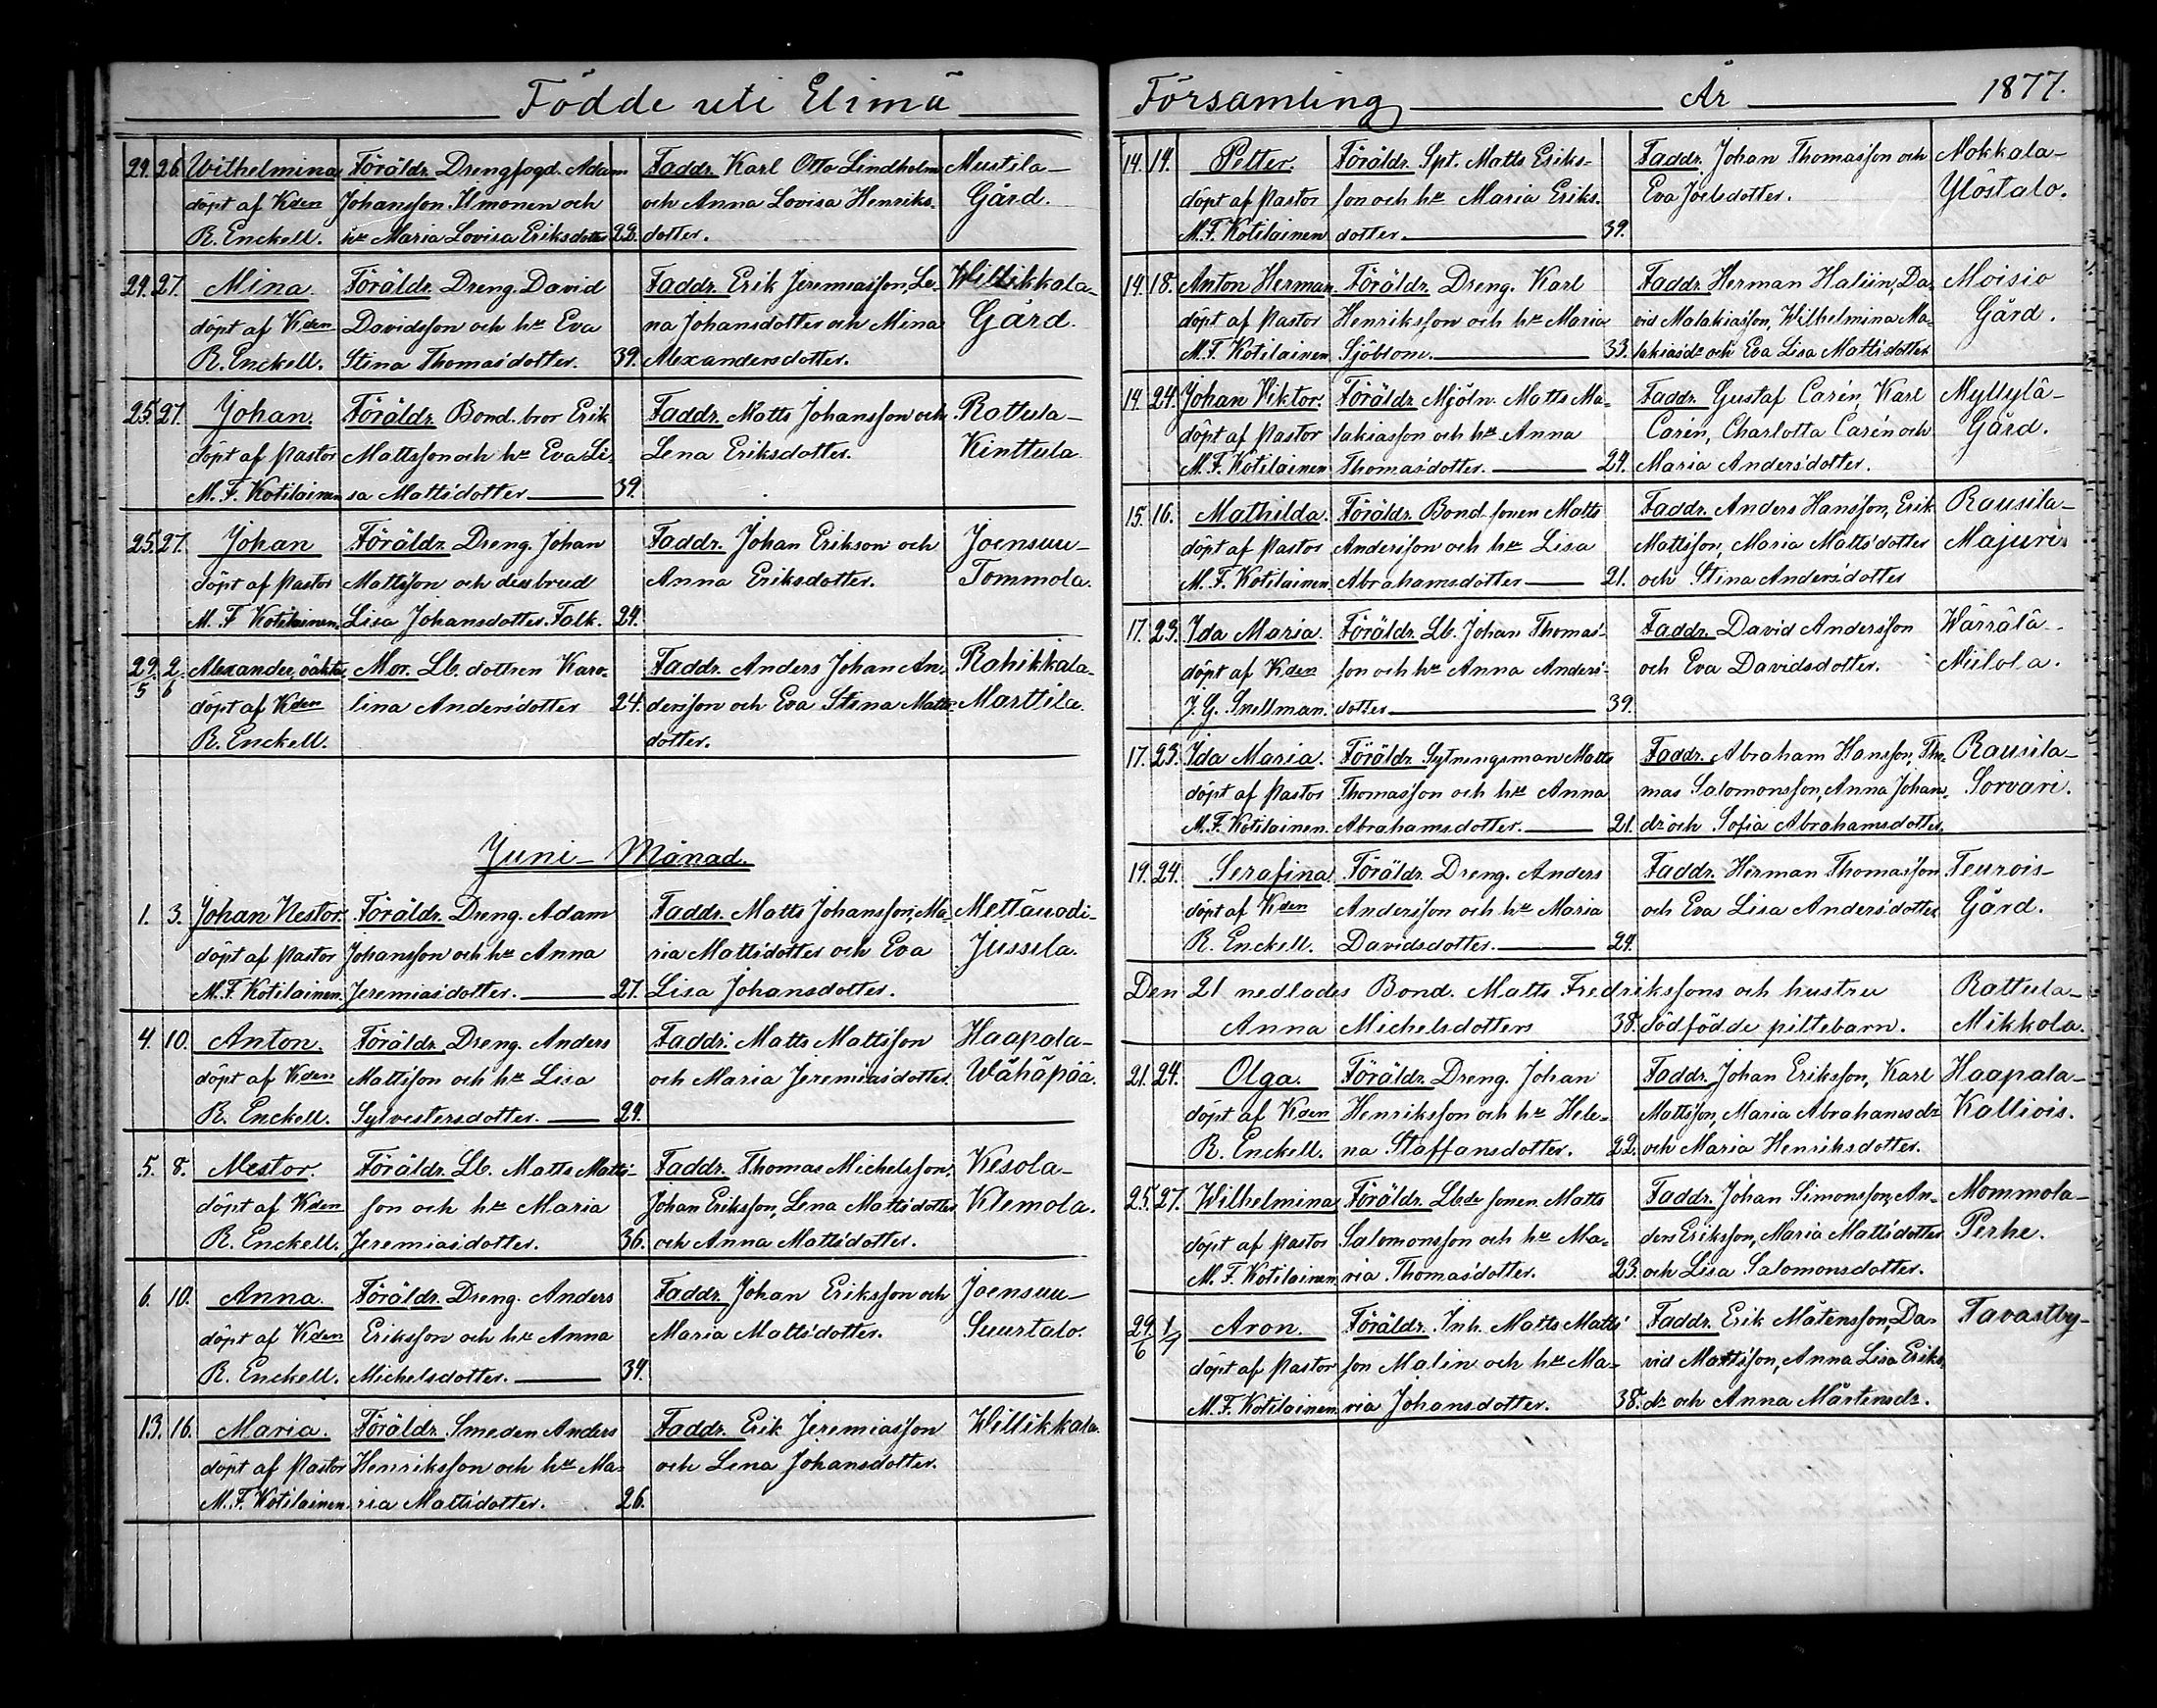 Födde uti Elimä
24. 26. Wilhelmina Föräldr. Drengfogd. Adam Faddr. Karl Otto Lindholm Mustila-
döpt af Kden Johansson Ilmonen och och Anna Lovisa Henriks- Gård.
R. Enckell. hu Maria Lovisa Eriksdotter 22. dotter.
24. 27. Mina. Föräldr. Dreng. David Faddr. Erik Jeremiasson, Le- Willikkala-
döpt af Kden Davidsson och hu Eva na Johansdotter och Mina Gård.
R. Enckell. Stina Thomasdotter. 39. Alexandersdotter.
25. 27. Johan. Föräldr. Bond. bror Erik Faddr. Matts Johansson och Rattula-
döpt af Pastor Mattsson och hu Eva Li- Lena Eriksdotter. Kinttula.
M. F. Kotilainen sa Mattsdotter 39.
25. 27. Johan Föräldr. Dreng. Johan Faddr. Johan Erikson och Joensuu-
döpt af Pastor Mattsson och dess brud Anna Eriksdotter. Tommola.
M. F. Kotilainen. Lisa Johansdotter Falk. 24.
29/5 2/6 Alexander, oäkta, Mor. Lb. dottren Karo- Faddr. Anders Johan An- Rahikkala-
döpt af Kden lina Andersdotter 24. dersson och Eva Stina Matts- Marttila.
R. Enckell. dotter.
Juni- Månad.
1. 3. Johan Nestor. Föräldr. Dreng. Adam Faddr. Matts Johansson, Ma- Mettäuodi-
döpt af Pastor Johansson och hu Anna ria Mattsdotter och Eva Jussila.
M. F. Kotilainen. Jeremiasdotter. 27. Lisa Johansdotter.
4. 10. Anton. Föräldr. Dreng. Anders Faddr. Matts Mattsson Haapala-
döpt af Kden Mattsson och hu Lisa och Maria Jeremiasdotter. Wähäpää.
R. Enckell. Sylvestersdotter. 24.
5. 8. Nestor. Föräldr. Lb. Matts Matts- Faddr. Thomas Michelsson, Kesola-
döpt af Kden son och hu Maria Johan Eriksson, Lena Mattsdotter Klemola.
R. Enckell. Jeremiasdotter. 36. och Anna Mattsdotter.
6. 10. Anna. Föräldr. Dreng. Anders Faddr. Johan Eriksson och Joensuu-
döpt af Kden Eriksson och hu Anna Maria Mattsdotter. Suurtalo.
R. Enckell. Michelsdotter. 34.
13. 16. Maria. Föräldr. Smeden Anders Faddr. Erik Jeremiasson Willikkala.
döpt af Pastor Henriksson och hu Ma- och Lena Johansdotter.
M. F. Kotilainen. ria Mattsdotter. 26.
Församling År 1877.
14. 14. Petter. Föräldr. Spt. Matts Eriks- Faddr. Johan Thomasson och Mokkala-
döpt af Pastor son och hu Maria Eriks- Eva Joelsdotter. Ylöstalo.
M. F. Kotilainen dotter. 39.
14. 18. Anton Herman Föräldr. Dreng. Karl Faddr. Herman Haliin, Da- Moisio
döpt af Pastor Henriksson och hu Maria vid Malakiasson, Wilhelmina Ma- Gård.
M. F. Kotilainen Sjöblom. 33. lakiasdr och Eva Lisa Mattsdotter
14. 24. Johan Wiktor. Föräldr. Mjöln. Matts Ma- Faddr. Gustaf Carén, Karl Myllylä-
döpt af Pastor lakiasson och hu Anna Carén, Charlotta Carén och Gård.
M. F. Kotilainen Thomasdotter. 24. Maria Andersdotter.
15. 16. Mathilda. Föräldr. Bond. sonen Matts Faddr. Anders Hansson, Erik Rausila-
döpt af Pastor Andersson och hu Lisa Mattsson, Maria Mattsdotter Majuri.
M. F. Kotilainen. Abrahamsdotter 21. och Stina Andersdotter
17. 23. Ida Maria. Föräldr. Lb. Johan Thomas- Faddr. David Andersson Wärrälä-
döpt af Kden son och hu Anna Anders- och Eva Davidsdotter. Miilola.
J. G. Snellman. dotter 39.
17. 23. Ida Maria. Föräldr. Sytningsman Matts Faddr. Abraham Hansson, Tho- Rausila-
döpt af Pastor Thomasson och hu Anna mas Salomonsson, Anna Johans- Sorvari.
M. F. Kotilainen. Abrahamsdotter. 21. dr och Sofia Abrahamsdotter.
19. 24. Serafina. Föräldr. Dreng. Anders Faddr. Herman Thomasson Teurois-
döpt af Kden Andersson och hu Maria och Eva Lisa Andersdotter Gård.
R. Enckell. Davidsdotter. 24.
Den 21 nedlades Bond. Matts Fredrikssons och hustru Rattula-
Anna Michelsdotters 38. dödfödde piltebarn. Mikkola.
21. 24. Olga. Föräldr. Dreng. Johan Faddr. Johan Eriksson, Karl Haapala-
döpt af Kden Henriksson och hu Hele- Mattsson, Maria Abrahamsdr Kalliois.
R. Enckell. na Staffansdotter. 22. och Maria Henriksdotter.
25. 27. Wilhelmina Föräldr. Lbde sonen Matts Faddr. Johan Simonsson, An- Mommola-
döpt af Pastor Salomonsson och hu Ma- ders Eriksson, Maria Mattsdotter Perhe.
M. F. Kotilainen ria Thomasdotter. 23. och Lisa Salomonsdotter.
29/6 1/7 Aron. Föräldr. Inh. Matts Matts- Faddr. Erik Måtensson, Da- Tavastby-
döpt af Pastor son Malin och hu Ma- vid Mattsson, Anna Lisa Eriks-
M. F. Kotilainen. ria Johansdotter. 38. dr och Anna Mårtensdr.